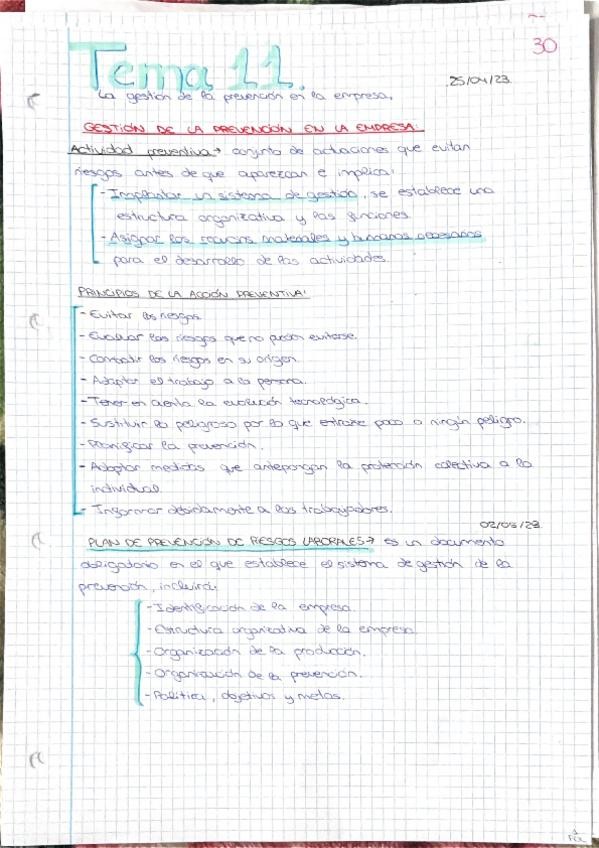 30
Tema 11.
25/04/23
La gestión de la prevención en la empresa.
GESTIÓN DE LA PREVENCIÓN EN LA EMPRESA:
Actividad preventiva → conjunto de actuaciones que evitan
riesgos antes de que aparezcan e implica:
- Implantar un sistema de gestión, se establece una
estructura organizativa y las funciones.
- Asignar los recursos materiales y humanos necesarios
para el desarrollo de las actividades.
PRINCIPIOS DE LA ACCIÓN PREVENTIVA:
- Evitar los riesgos.
- Evaluar los riesgos que no puedan evitarse.
- Combatir los riesgos en su origen.
- Adaptar el trabajo a la persona.
- Tener en cuenta la evolución tecnológica.
- Sustituir lo peligroso por lo que entrañe poco o ningún peligro.
- Planificar la prevención.
- Adoptar medidas que antepongan la protección colectiva a la
individual.
- Informar debidamente a los trabajadores.
02/05/23
PLAN DE PREVENCIÓN DE RIESGOS LABORALES → es un documento
obligatorio en el que establece el sistema de gestión de la
prevención, incluirá:
- Identificación de la empresa.
- Estructura organizativa de la empresa.
- Organización de la producción.
- Organización de la prevención.
- Política, objetivos y metas.